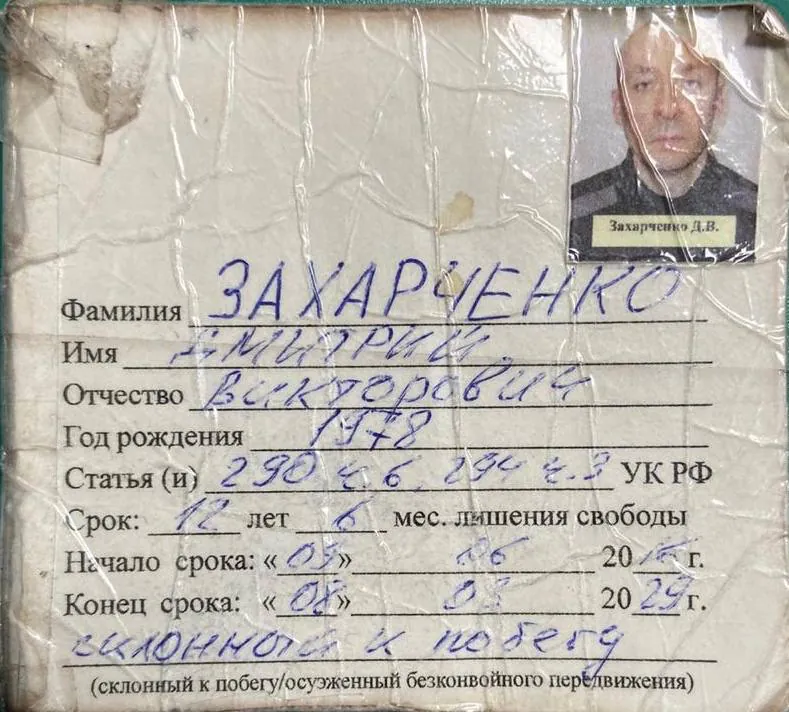 Захарченко Д.В.
Фамилия ЗАХАРЧЕНКО
Имя ДМИТРИЙ
Отчество Викторович
Год рождения 1978
Статья (и) 290 ч. 6, 294 ч. 3 УК РФ
Срок: 12 лет 6 мес. лишения свободы
Начало срока: « » 06 20 г.
Конец срока: «08» 03 20 29 г.
склонный к побегу
(склонный к побегу/осужженный безконвойного передвижения)